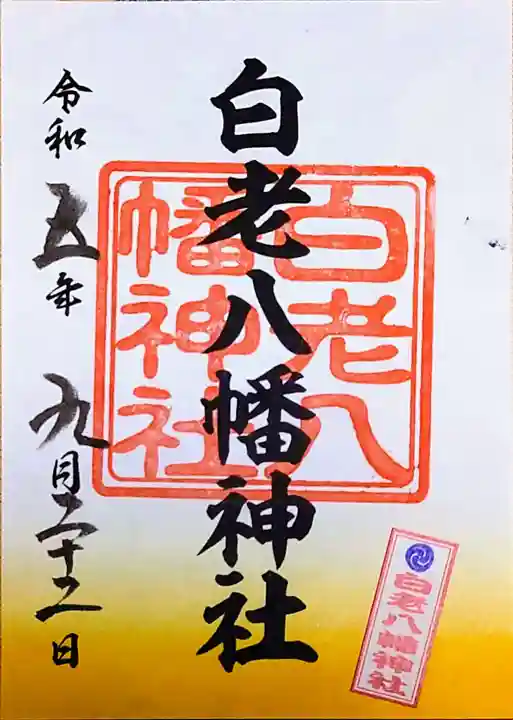 白老八幡神社
白老八
幡神社
令和五年 九月二十二日
白老八幡神社